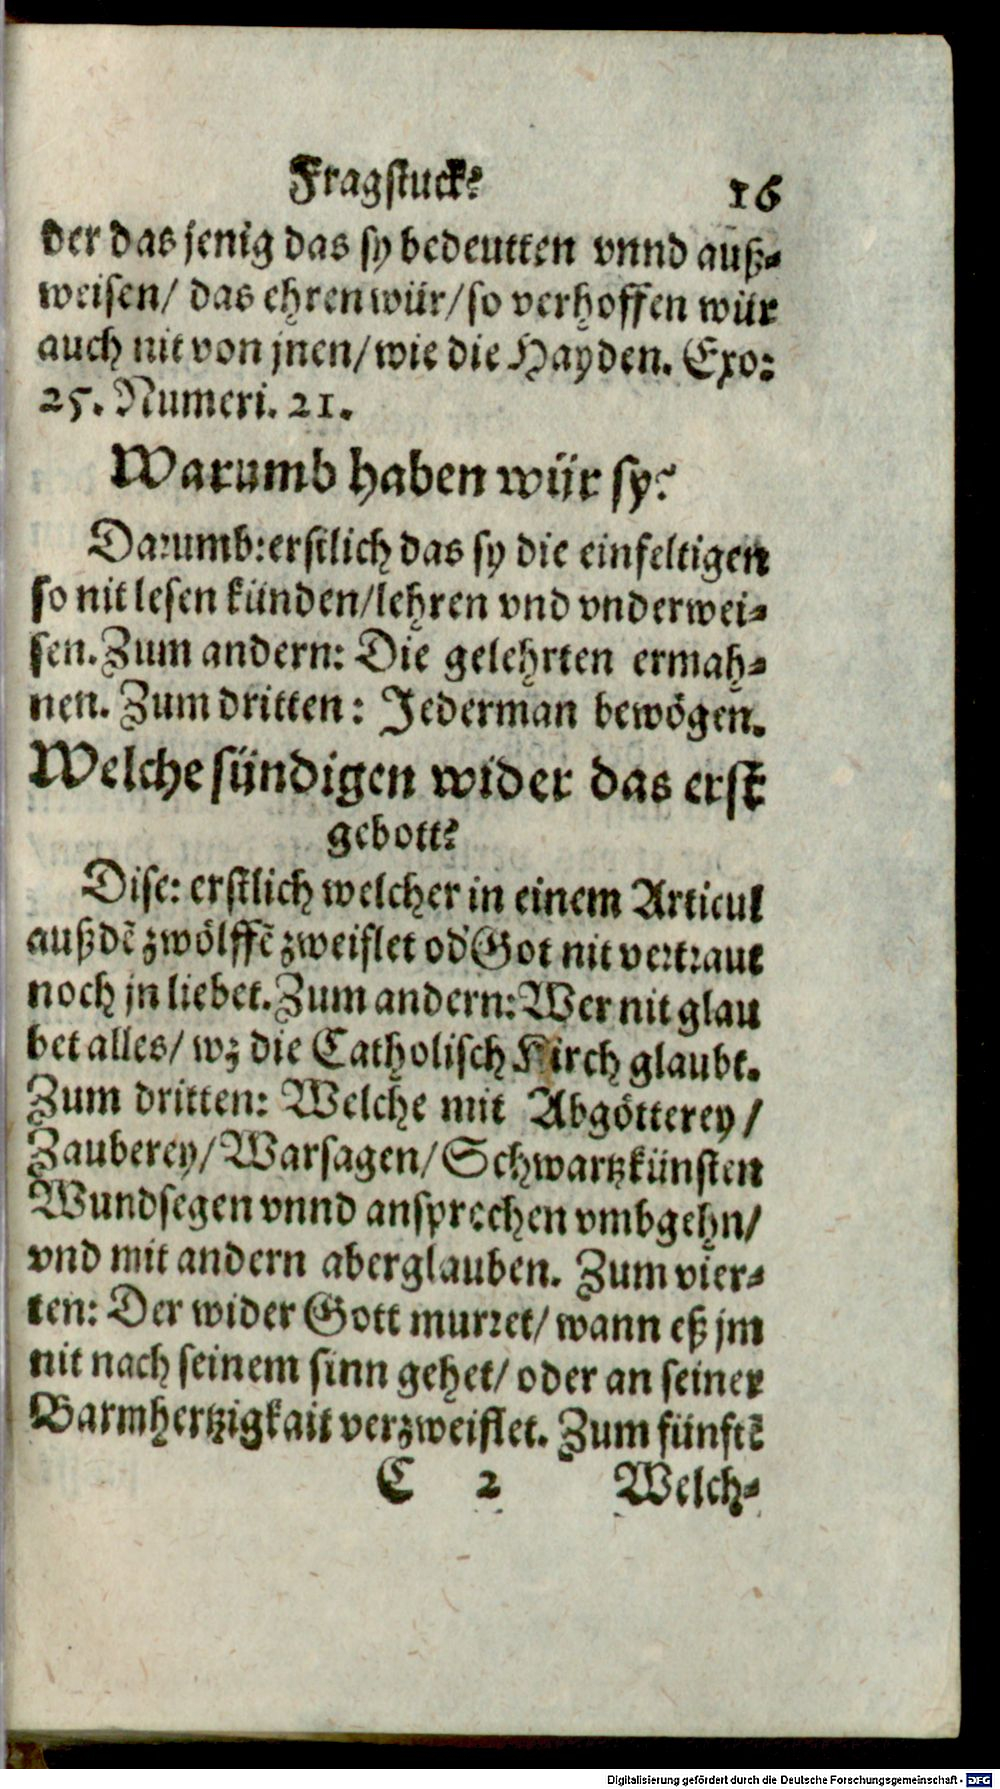 Fragstuck? 16
der das jenig das sy bedeutten vnnd auß-
weisen/ das ehren wür/ so verhoffen wür
auch nit von jnen/ wie die Hayden. Exo:
25. Numeri. 21.
Warumb haben wür sy?
Darumb: erstlich das sy die einfeltigen
so nit lesen künden/ lehren vnd vnderwei-
sen. Zum andern: Die gelehrten ermah-
nen. Zum dritten: Jederman bewögen.
Welche sündigen wider das erst
gebott?
Dise: erstlich welcher in einem Articul
auß dẽ zwölffẽ zweiflet od' Got nit vertraut
noch jn liebet. Zum andern: Wer nit glau
bet alles/ wz die Catholisch Kirch glaubt.
Zum dritten: Welche mit Abgötterey/
Zauberey/ Warsagen/ Schwartzkünsten
Wundsegen vnnd ansprechen vmbgehn/
vnd mit andern aberglauben. Zum vier-
ten: Der wider Gott murret/ wann eß jm
nit nach seinem sinn gehet/ oder an seiner
Barmhertzigkait verzweiflet. Zum fünftẽ
C 2 Welch-
Digitalisierung gefördert durch die Deutsche Forschungsgemeinschaft - DFG